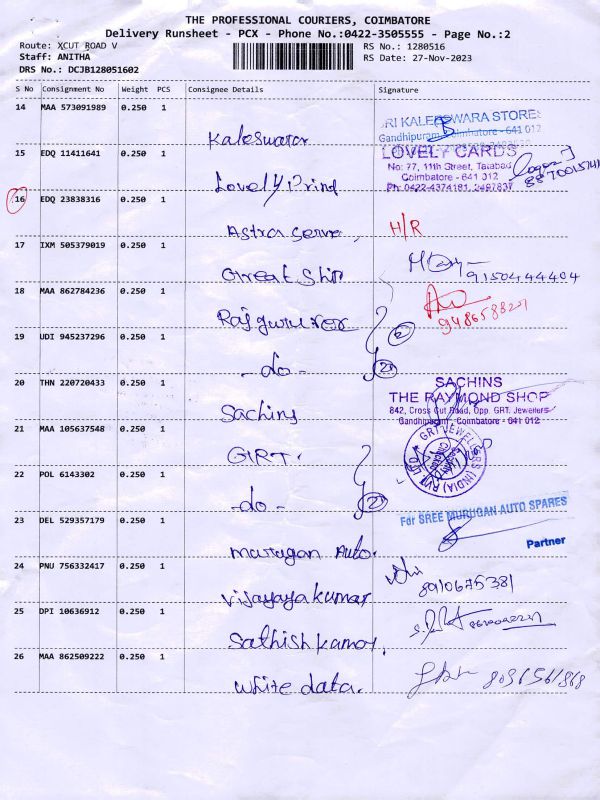 THE PROFESSIONAL COURIERS, COIMBATORE
Delivery Runsheet - PCX - Phone No.:0422-3505555 - Page No.:2
Route: XCUT ROAD V
RS No.: 1280516
Staff: ANITHA
RS Date: 27-Nov-2023
DRS No.: DCJB128051602
S No Consignment No Weight PCS Consignee Details Signature
14 MAA 573091989 0.250 1
Kaleswarar
SRI KALEESWARA STORES
Gandhipuram, Coimbatore - 641 012
15 EDQ 11411641 0.250 1
Lovely Prind
LOVELY CARDS
No: 77, 11th Street, Tatabad
Coimbatore - 641 012
Ph: 0422-4374181, 2497837
16 EDQ 23838316 0.250 1
Astra Serve,
H/R
17 IXM 505379019 0.250 1
Great Ship
9150444404
18 MAA 862784236 0.250 1
Rajguru
19 UDI 945237296 0.250 1
-do-
2)
20 THN 220720433 0.250 1
Sachins
SACHINS
THE RAYMOND SHOP
842, Cross Cut Road, Opp. GRT. Jewellers
Gandhipuram, Coimbatore - 641 012
21 MAA 105637548 0.250 1
GIRT.
GRT JEWELLERS (INDIA) PVT. LTD
22 POL 6143302 0.250 1
-do-
2)
23 DEL 529357179 0.250 1
Murugan Auto.
For SREE MURUGAN AUTO SPARES
Partner
24 PNU 756332417 0.250 1
Vijayayakumar
8910675381
25 DPI 10636912 0.250 1
Sathish kamor,
26 MAA 862509222 0.250 1
White data.